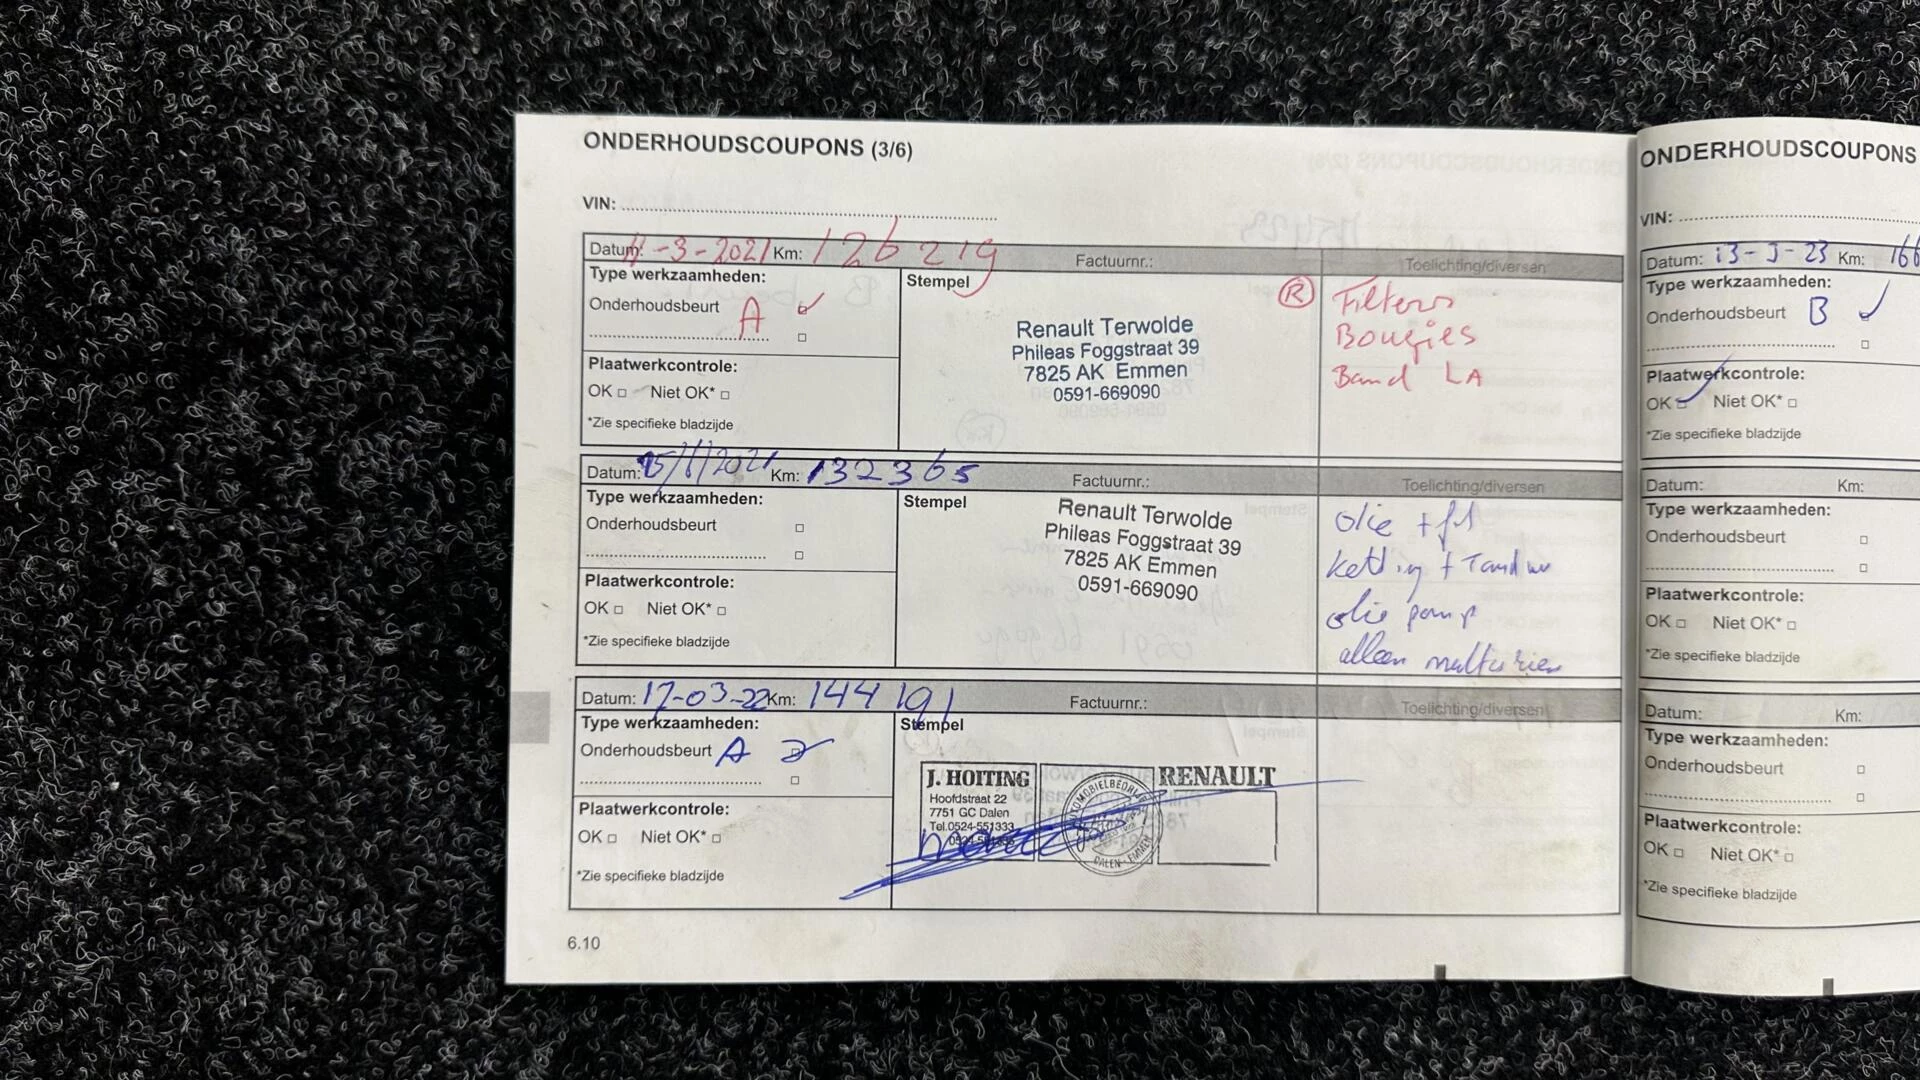 ONDERHOUDSCOUPONS (3/6)
VIN:
Datum: 11-3-2021 Km: 126219 Factuurnr.: Toelichting/diversen
Type werkzaamheden:
Onderhoudsbeurt A
Stempel
Renault Terwolde
Phileas Foggstraat 39
7825 AK Emmen
0591-669090
® Filters
Bougies
Band LA
Plaatwerkcontrole:
OK Niet OK*
*Zie specifieke bladzijde
Datum: Km: 132365 Factuurnr.: Toelichting/diversen
Type werkzaamheden:
Onderhoudsbeurt
Stempel
Renault Terwolde
Phileas Foggstraat 39
7825 AK Emmen
0591-669090
olie +
ketting +
olie pomp
alleen
Plaatwerkcontrole:
OK Niet OK*
*Zie specifieke bladzijde
Datum: 17-03-22 Km: 144191 Factuurnr.: Toelichting/diversen
Type werkzaamheden:
Onderhoudsbeurt A
Stempel
J. HOITING
Hoofdstraat 22
7751 GC Dalen
Tel.0524-551333
DALEN - EMMEN
RENAULT
Plaatwerkcontrole:
OK Niet OK*
*Zie specifieke bladzijde
6.10
ONDERHOUDSCOUPONS
VIN:
Datum: Km: 166
Type werkzaamheden:
Onderhoudsbeurt B
Plaatwerkcontrole:
OK Niet OK*
*Zie specifieke bladzijde
Datum: Km:
Type werkzaamheden:
Onderhoudsbeurt
Plaatwerkcontrole:
OK Niet OK*
*Zie specifieke bladzijde
Datum: Km:
Type werkzaamheden:
Onderhoudsbeurt
Plaatwerkcontrole:
OK Niet OK*
*Zie specifieke bladzijde